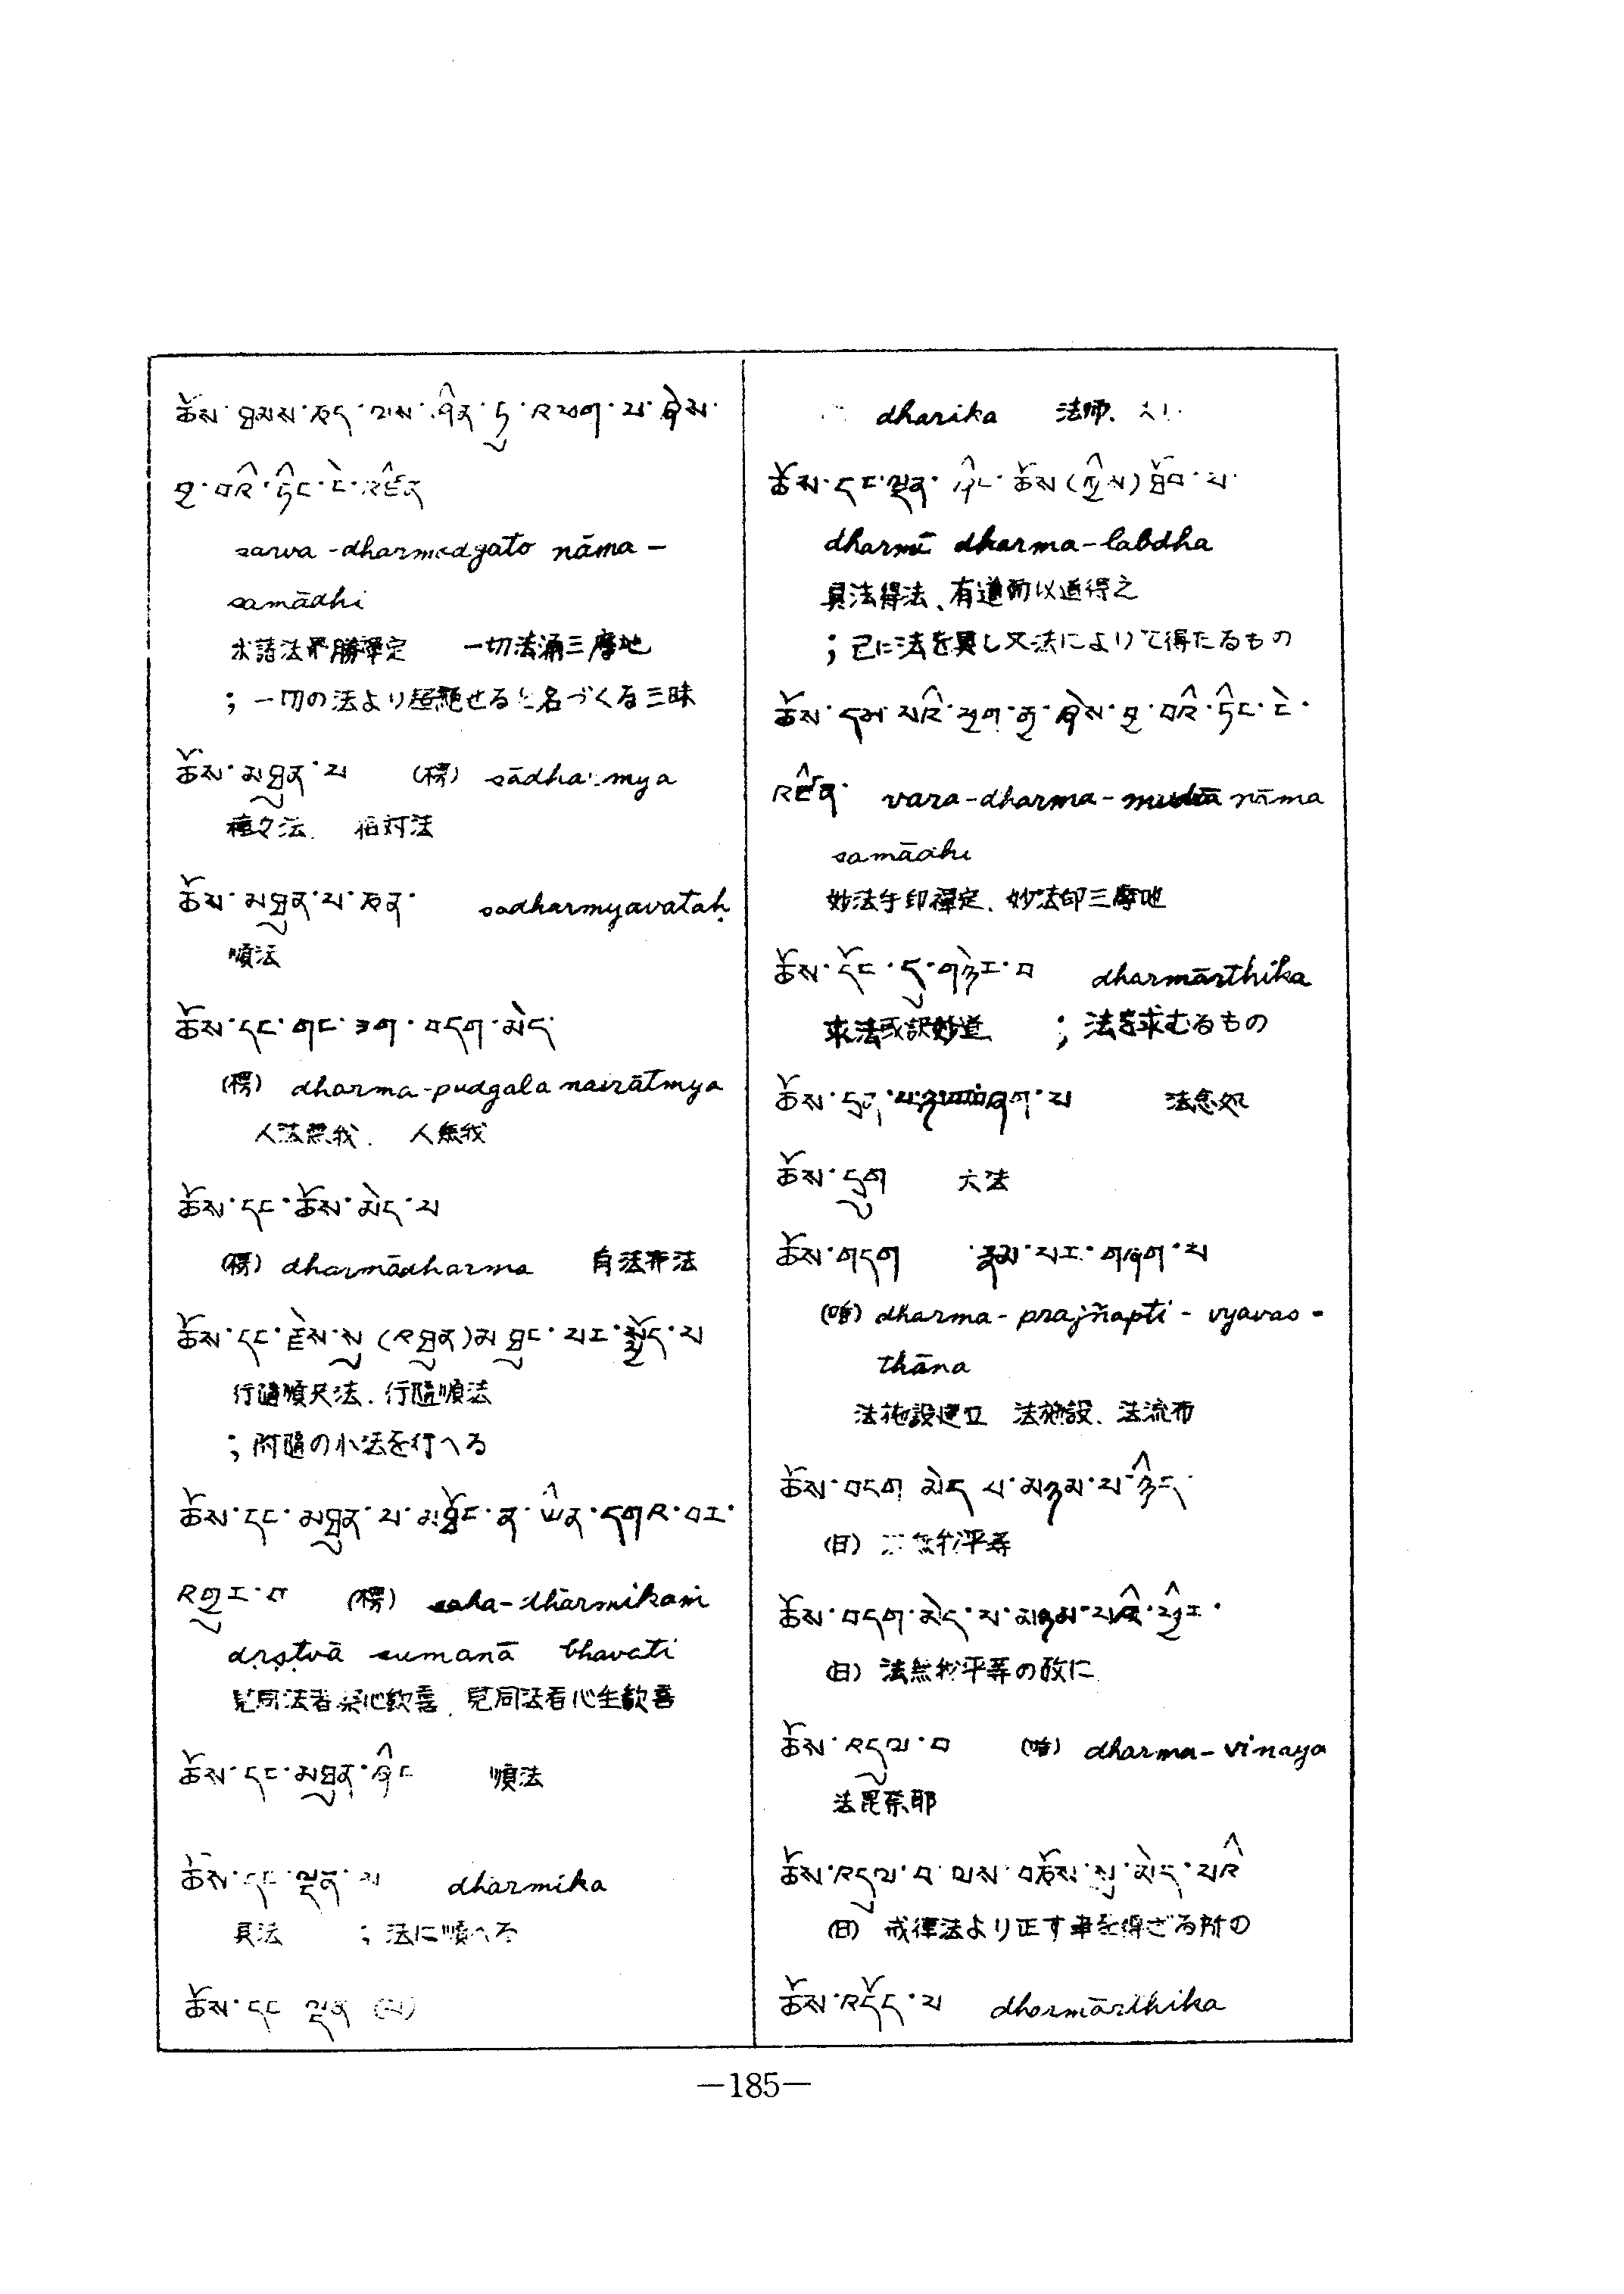 ཆོས་ཐམས་ཅད་ལས་ཤིན་ཏུ་འཕག་པ་ཞེས་
བྱ་བའི་ཏིང་ངེ་འཛིན
sarva-dharmodgato nāma-
samādhi
求諸法界勝禪定 一切法涌三摩地
; 一切の法より超絶せると名づくる三昧
ཆོས་མཐུན་པ (榜) sādha mya
種々法. 相対法
ཆོས་མཐུན་པ་ཅན་ sadharmyavataḥ
順法
ཆོས་དང་གང་ཟག་བདག་མེད་
(榜) dharma-pudgala nairātmya
人法無我. 人無我
ཆོས་དང་ཆོས་མེད་པ
(榜) dharmādharma 有法非法
ཆོས་དང་རྗེས་སུ་(འཐུན)མཐུང་པར་སྤྱོད་པ
行隨順尺法. 行隨順法
; 附隨の小法を行へる
ཆོས་དང་མཐུན་པ་མཐོང་ན་ཡིན་དགའ་བར་
འགྱུར་བ (榜) saha-dhārmikaṁ
dṛṣṭvā sumanā bhavati
見同法者 心歓喜. 見同法者心生歓喜
ཆོས་དང་མཐུན་ཞིང 順法
ཆོས་དང་ལྡན་པ dharmika
具法 ; 法に順へる
ཆོས་དང་ལྡན (པ)
dharika 法師.
ཆོས་དང་ལྡན་ཞིང་ཆོས(ཀྱིས)ཐོབ་པ་
dharmī dharma-labdha
具法得法、有道而以道得之
; 己に法を具し又法によりて得たるもの
ཆོས་དམ་པའི་ཕྱག་རྒྱ་ཞེས་བྱ་བའི་ཏིང་ངེ་
འཛིན་ vara-dharma-mudrā nāma
samādhi
妙法手印禪定. 妙法印三摩地
ཆོས་དོང་དུ་གཉེར་བ dharmārthika
求法或訳妙道 ; 法を求むるもの
ཆོས་དྲན་པ་ཉེ་བར་བཞག་པ 法念処
ཆོས་དྲུག 六法
ཆོས་གདག རྣམ་པར་གཞག་པ
dharma-prajñapti-vyavas-
thāna
法施設建立 法施設. 法流布
ཆོས་བདག་མེད་པ་མཉམ་པ་ཉིད་
(日) 無我平等
ཆོས་བདག་མེད་པ་མཉམ་པའི་ཕྱིར་
(日) 法無我平等の故に
ཆོས་འདུལ་བ dharma-vinaya
法毘奈耶
ཆོས་འདུལ་བ་ལས་བཅོས་སུ་མེད་པའི
(日) 戒律法より正す事を得ざる所の
ཆོས་འདོད་པ dharmārthika
—185—